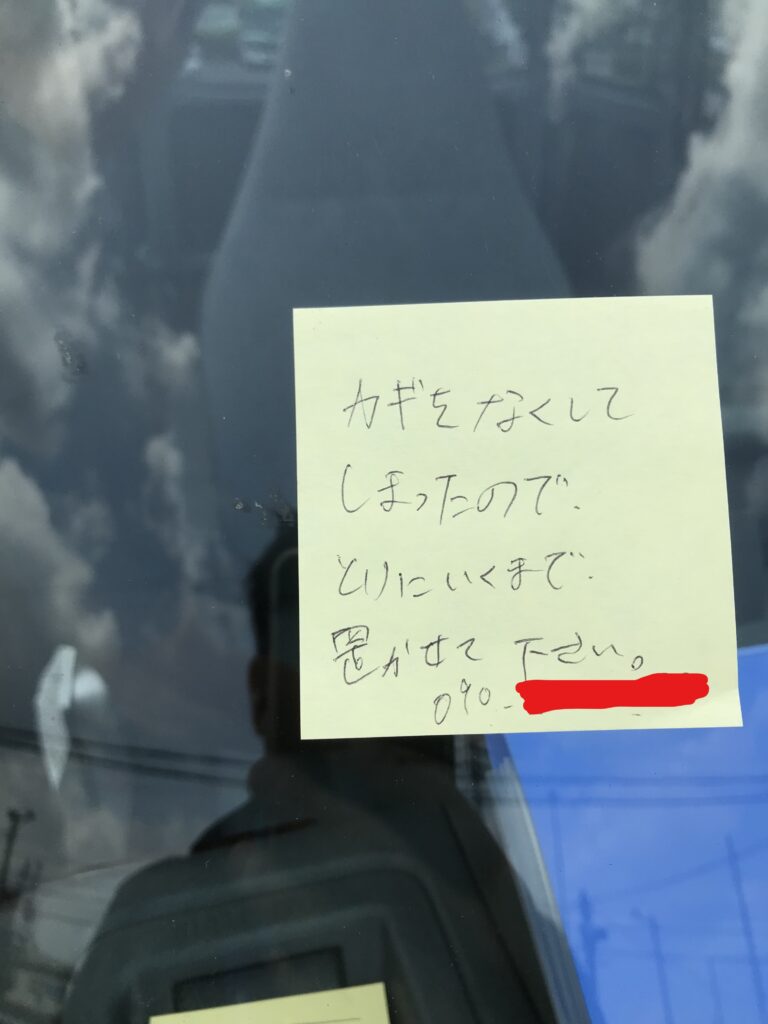 カギをなくして
しまったので、
とりにいくまで、
置かせて下さい。
090-